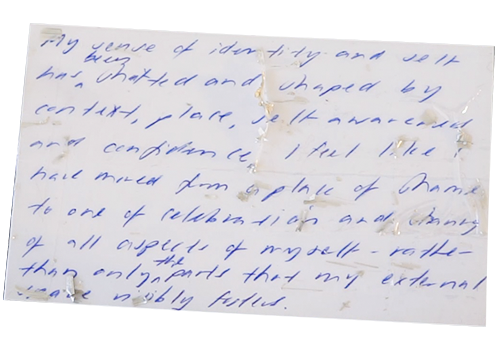 My sense of identity and self
has been shifted and shaped by
context, place, self awareness
and confidence. I feel like I
have moved from a place of shame
to one of celebration and sharing
of all aspects of myself - rather
than only the parts that my external